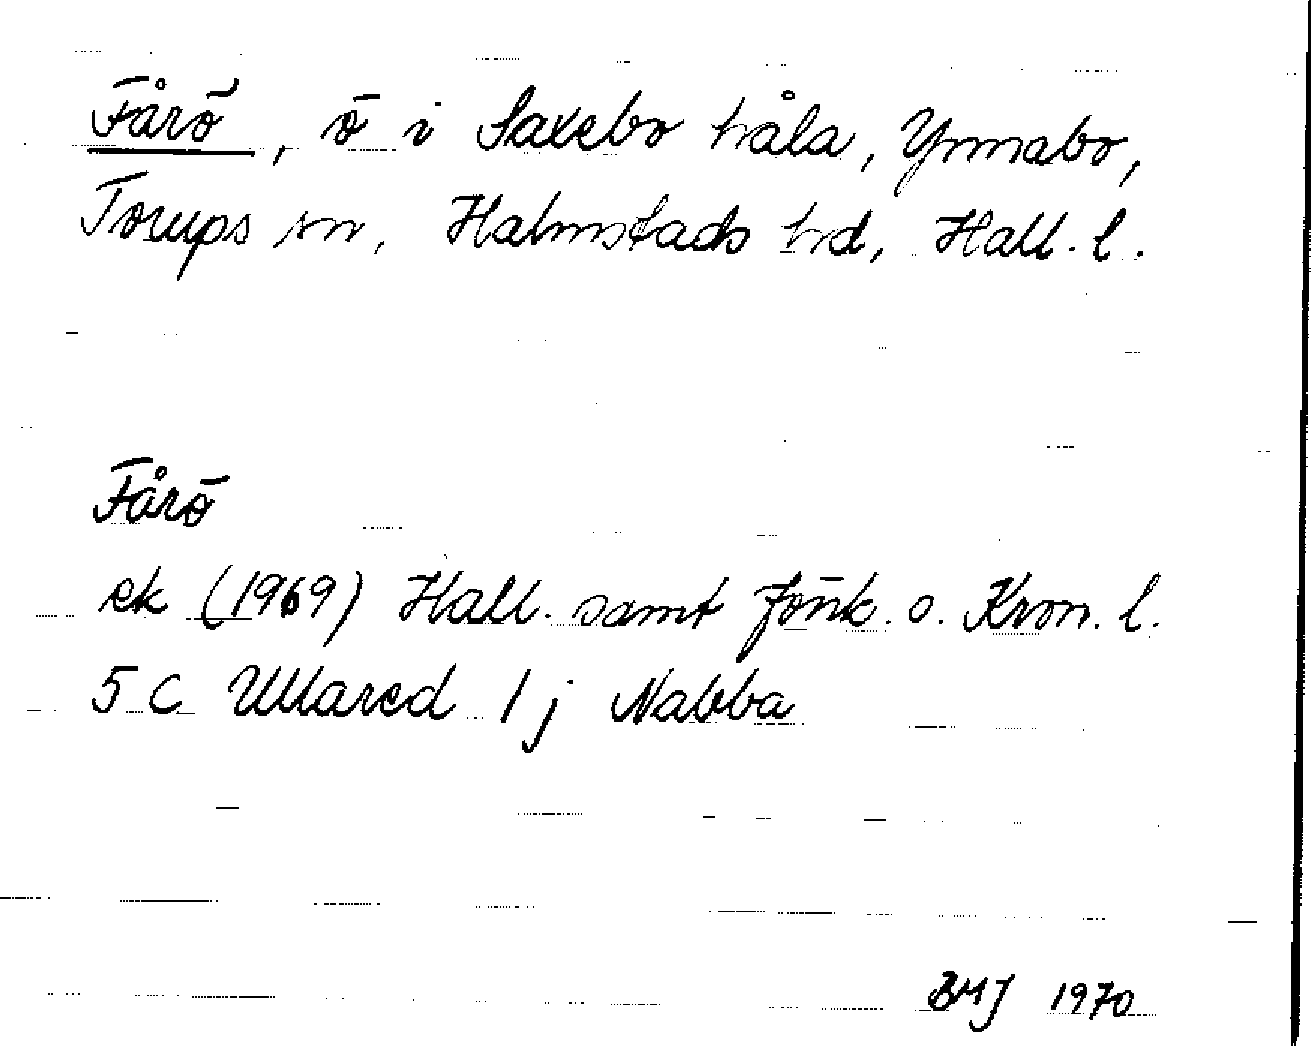 Fårö, ö i Saxebo håla, Ynnabo,
Torups sn, Halmstads hd, Hall. l.
Fårö
ek (1969) Hall. samt Jönk. o. Kron. l.
5 C Ullared 1 j Nabba
BMJ 1970